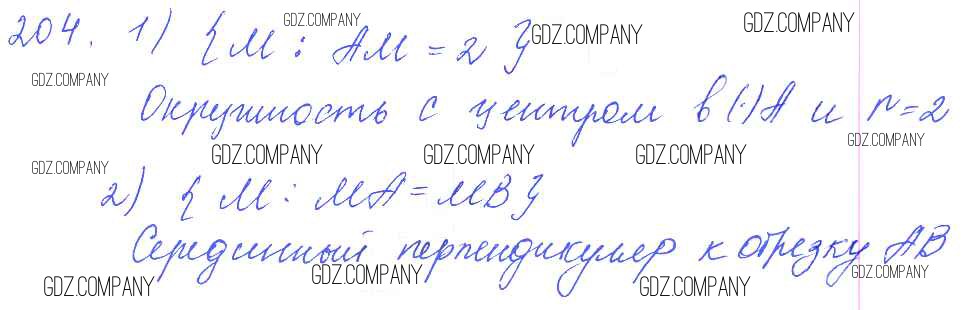 204. 1) {M : AM = 2}
Окружность с центром в (·) A и r = 2
2) {M : MA = MB}
Серединный перпендикуляр к отрезку AB
GDZ.COMPANY GDZ.COMPANY GDZ.COMPANY
GDZ.COMPANY
GDZ.COMPANY
GDZ.COMPANY GDZ.COMPANY GDZ.COMPANY GDZ.COMPANY
GDZ.COMPANY GDZ.COMPANY GDZ.COMPANY GDZ.COMPANY